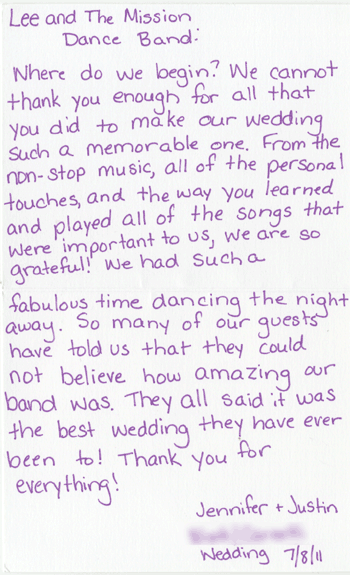 Lee and The Mission
Dance Band:
Where do we begin? We cannot
thank you enough for all that
you did to make our wedding
such a memorable one. From the
non-stop music, all of the personal
touches, and the way you learned
and played all of the songs that
were important to us, we are so
grateful! We had such a
fabulous time dancing the night
away. So many of our guests
have told us that they could
not believe how amazing our
band was. They all said it was
the best wedding they have ever
been to! Thank you for
everything!
Jennifer + Justin
Wedding 7/8/11